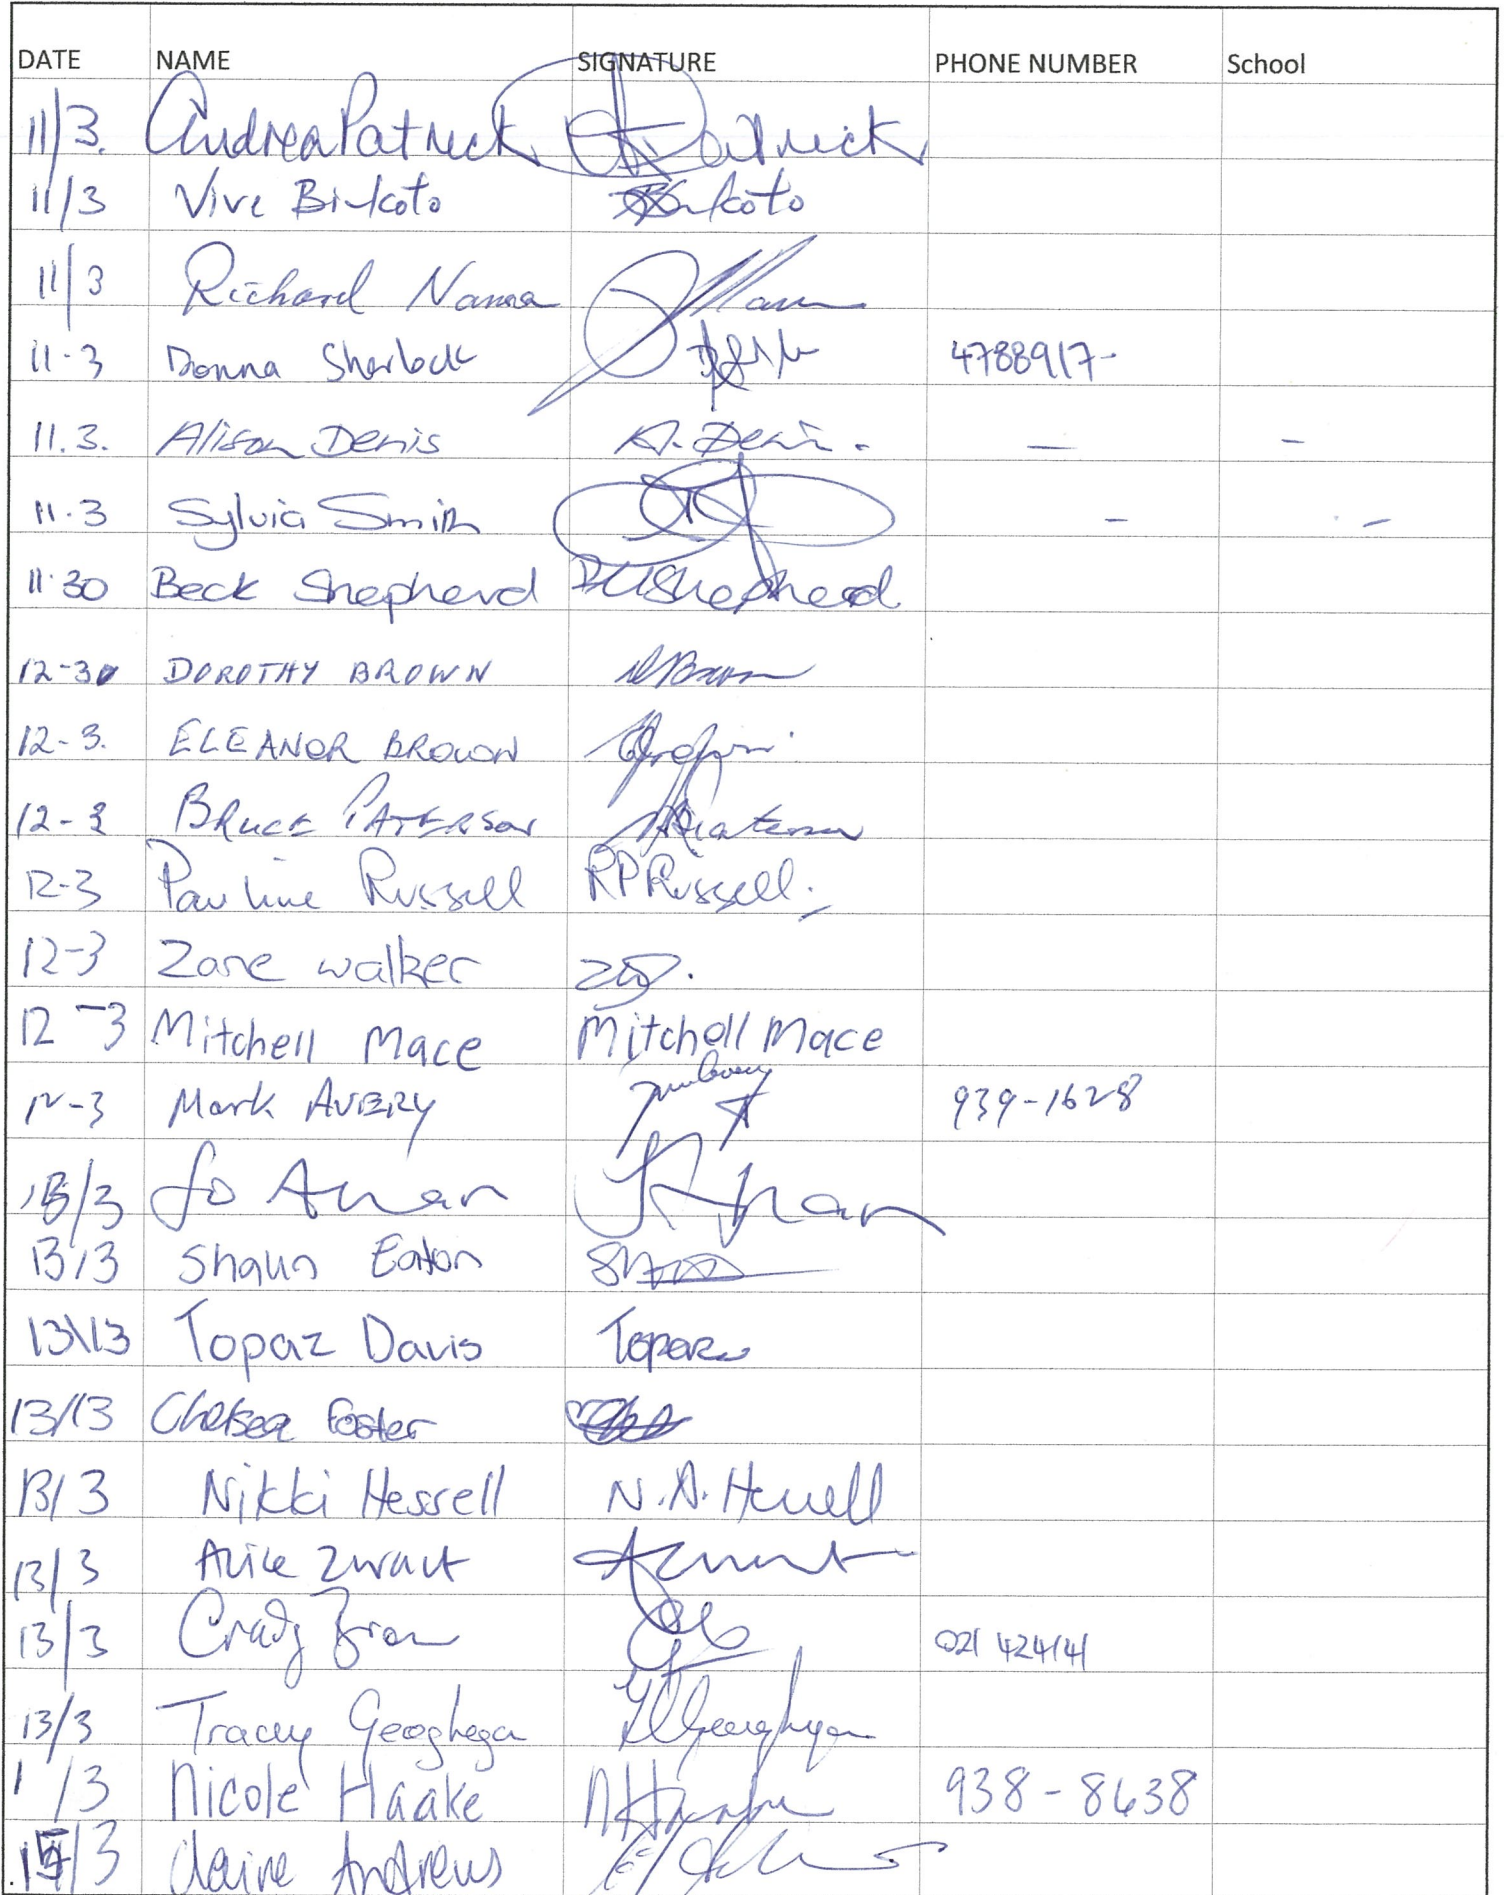 DATE NAME SIGNATURE PHONE NUMBER School
11/3. Andrea Patrick Patrick
11/3 Vive Binkoto Binkoto
11/3 Richard Nanna
11-3 Donna Sherlock 4788917-
11.3. Alison Denis A. Denis. — –
11.3 Sylvia Smith – –
11.30 Beck Shepherd Shepherd
12-30 DOROTHY BROWN Brown
12-3. ELEANOR BROWN
12-3 BRUCE PATERSON Paterson
12-3 Pauline Russell RPRussell.
12-3 Zane walker ZW.
12-3 Mitchell Mace Mitchell Mace
12-3 Mark AVERY 939-1628
13/3 Jo
13/3 Shaun Eaton
13\13 Topaz Davis Topaz
13/13 Chelsea Foster
13/3 Nikki Hessell N.A. Hessell
13/3 Alice Zwart AZwart
13/3 021 424141
13/3 Tracey Geoghegan Geoghegan
1 /3 Nicole Haake 938-8638
/3 Claire Andrews